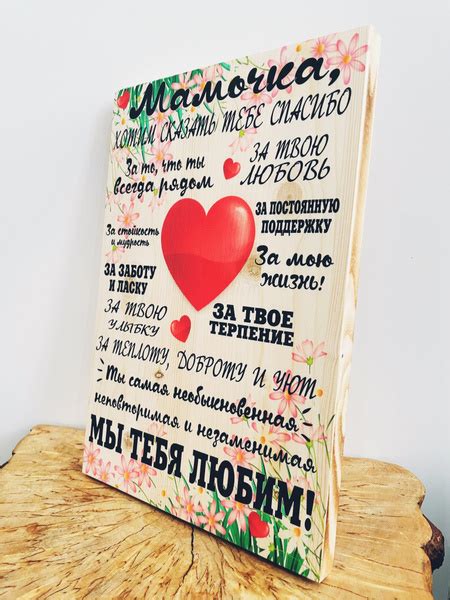 Мамочка,
ХОТИМ СКАЗАТЬ ТЕБЕ СПАСИБО
За то, что ты
всегда рядом
ЗА ТВОЮ
ЛЮБОВЬ
За стойкость
и мудрость
ЗА ПОСТОЯННУЮ
ПОДДЕРЖКУ
ЗА ЗАБОТУ
И ЛАСКУ
За мою
жизнь!
ЗА ТВОЮ
УЛЫБКУ
ЗА ТВОЕ
ТЕРПЕНИЕ
ЗА ТЕПЛОТУ, ДОБРОТУ И УЮТ
Ты самая необыкновенная
неповторимая и незаменимая
МЫ ТЕБЯ ЛЮБИМ!